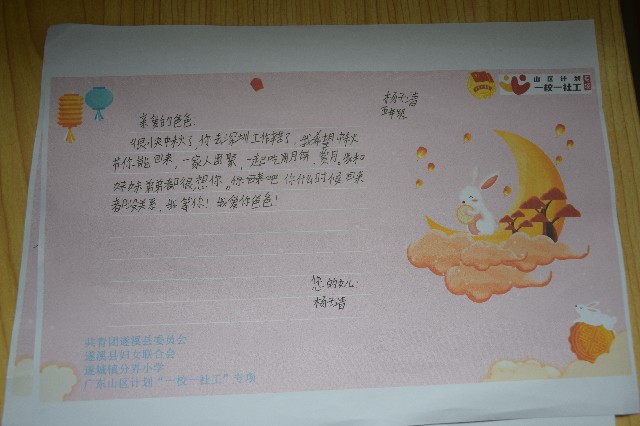 山区计划
一校一社工
专项
杨子清
亲爱的爸爸:
很快中秋了,你去深圳工作辛苦了,我希望中秋
节你能回来,一家人团聚,一起吃月饼,赏月。我和
妹妹弟弟都很想你,你回来吧你什么时候回来
都没关系,我等你!我爱你爸爸!
您的女儿:
杨子清
共青团遂溪县委员会
遂溪县妇女联合会
遂城镇分界小学
广东山区计划“一校一社工”专项